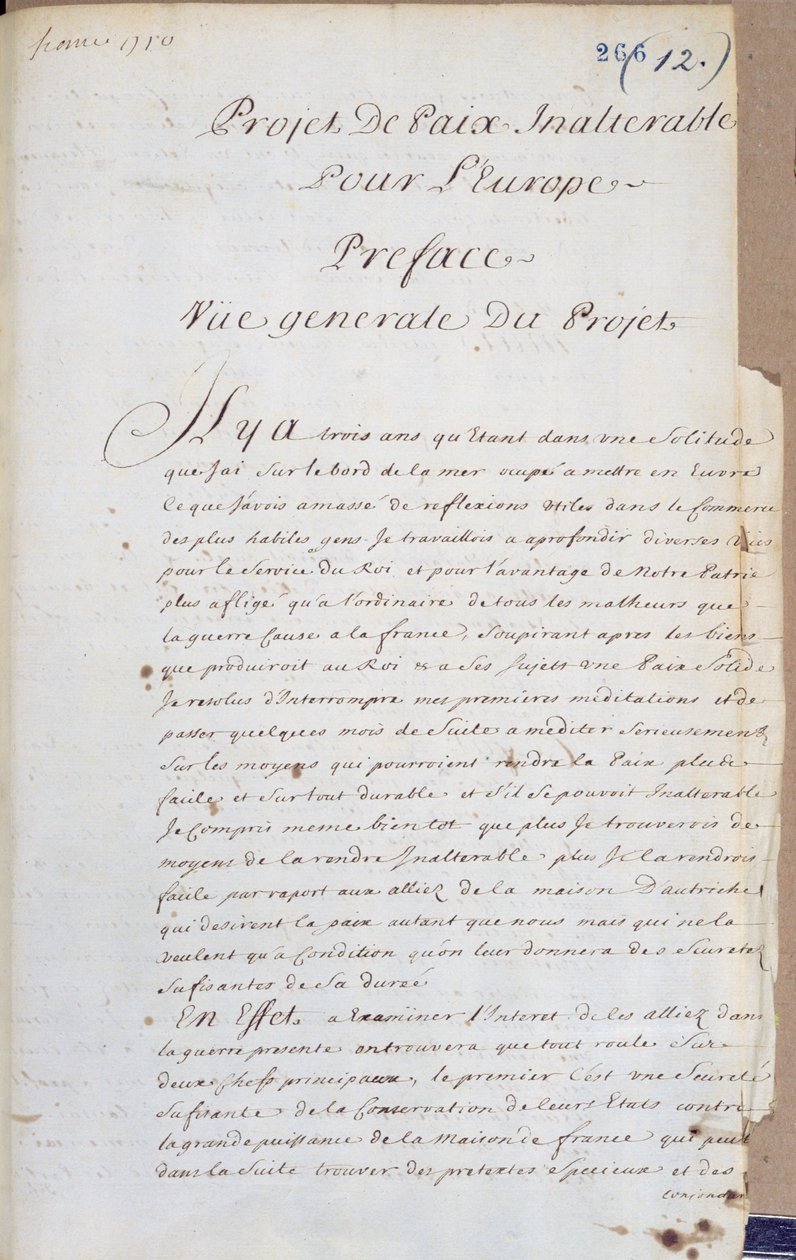 france 1710
266
(12.)
Projet De Paix Inalterable
Pour L'Europe
Preface
Vüe generale Du Projet
Il y a trois ans qu'Etant dans une Solitude
que J'ai Sur le bord de la mer ocupé a mettre en Euvre
ce que J'avois amassé de reflexions utiles dans le Commerce
des plus habiles gens. Je travaillois a aprofondir diverses Vües
pour le Service du Roi et pour l'avantage de Notre Patrie
plus afligé qu'a l'ordinaire de tous les malheurs que
la guerre Cause a la france, Soupirant apres les biens
que produiroit au Roi & a Ses Sujets une Paix Solide
Je resolus d'Interrompre mes premieres meditations et de
passer quelques mois de Suite a mediter Serieusement
Sur les moyens qui pourroient rendre la Paix plus
facile et Sur tout durable et S'il Se pouvoit Inalterable
Je Compris meme bientot que plus Je trouverois de
moyens de la rendre Inalterable plus Je la rendrois
facile par raport aux alliez de la maison D'autriche
qui desirent la paix autant que nous mais qui ne la
veulent qu'a Condition qu'on leur donnera des Seuretez
Sufisantes de Sa dureé
En Effet a Examiner l'Interet de ces alliez dans
la guerre presente on trouvera que tout roule Sur
deux Chefs principaux, le premier C'est une Seureté
Sufisante de la Conservation de leurs Etats contre
la grande puissance de la Maison de france qui peut
dans la Suite trouver des pretextes Specieux et des